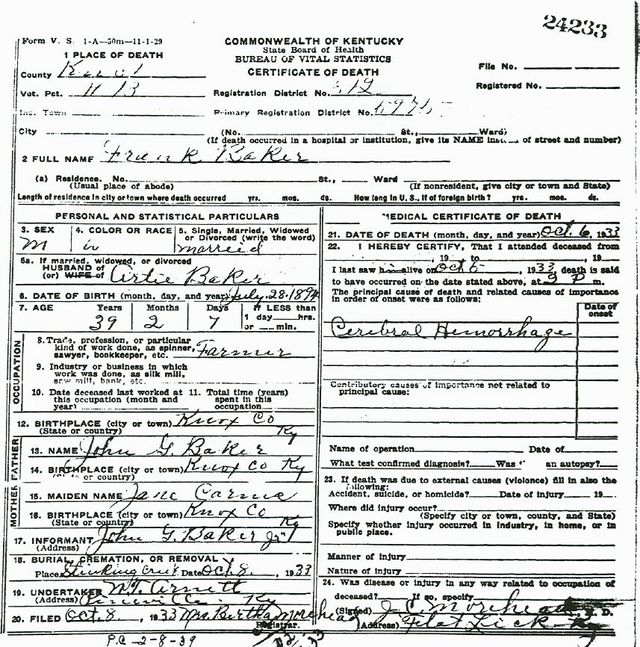 24233
Form V. S. 1-A-50m-11-1-29
COMMONWEALTH OF KENTUCKY
State Board of Health
BUREAU OF VITAL STATISTICS
CERTIFICATE OF DEATH
1 PLACE OF DEATH
County Knox
File No.
Vot. Pct.
Registration District No.
Registered No.
Inc. Town
Primary Registration District No.
City (No. St., Ward)
(If death occurred in a hospital or institution, give its NAME of street and number)
2 FULL NAME Frank Baker
(a) Residence. No. St., Ward
(Usual place of abode) (If nonresident, give city or town and State)
Length of residence in city or town where death occurred yrs. mos. ds. How long in U. S., if of foreign birth? yrs. mos. ds.
PERSONAL AND STATISTICAL PARTICULARS
3. SEX 4. COLOR OR RACE 5. Single, Married, Widowed
or Divorced (write the word)
M w married
5a. If married, widowed, or divorced
HUSBAND of
(or) WIFE of Artie Baker
6. DATE OF BIRTH (month, day, and year) July-28-1894
7. AGE Years Months Days If LESS than
1 day hrs.
39 2 7 or min.
OCCUPATION
8. Trade, profession, or particular
kind of work done, as spinner,
sawyer, bookkeeper, etc. Farmer
9. Industry or business in which
work was done, as silk mill,
saw mill, bank, etc.
10. Date deceased last worked at
this occupation (month and
year)
11. Total time (years)
spent in this
occupation
12. BIRTHPLACE (city or town) Knox Co
(State or country) Ky
FATHER
13. NAME John G. Baker
14. BIRTHPLACE (city or town) Knox Co Ky
(State or country)
MOTHER
15. MAIDEN NAME Jane
16. BIRTHPLACE (city or town) Knox Co
(State or country) Ky
17. INFORMANT John G. Baker
(Address)
18. BURIAL, CREMATION, OR REMOVAL
Place Stinking Creek Date Oct 8, 1933
19. UNDERTAKER Arnett
(Address) Pineville Ky
20. FILED Oct. 8, 1933 Mrs. Bertha Morehead
Registrar.
P.C-2-8-39
MEDICAL CERTIFICATE OF DEATH
21. DATE OF DEATH (month, day, and year) Oct. 6, 1933
22. I HEREBY CERTIFY, That I attended deceased from
, 19 to , 19
I last saw h alive on Oct 5, 1933, death is said
to have occurred on the date stated above, at 9 P m.
The principal cause of death and related causes of importance
in order of onset were as follows:
Date of
onset
Cerebral Hemorrhage
Contributory causes of importance not related to
principal cause:
Name of operation Date of
What test confirmed diagnosis? Was an autopsy?
23. If death was due to external causes (violence) fill in also the
following:
Accident, suicide, or homicide? Date of injury 19
Where did injury occur?
(Specify city or town, county, and State)
Specify whether injury occurred in industry, in home, or in
public place.
Manner of injury
Nature of injury
24. Was disease or injury in any way related to occupation of
deceased? If so, specify
(Signed) J. C. Morehead M. D.
(Address) Flat Lick Ky